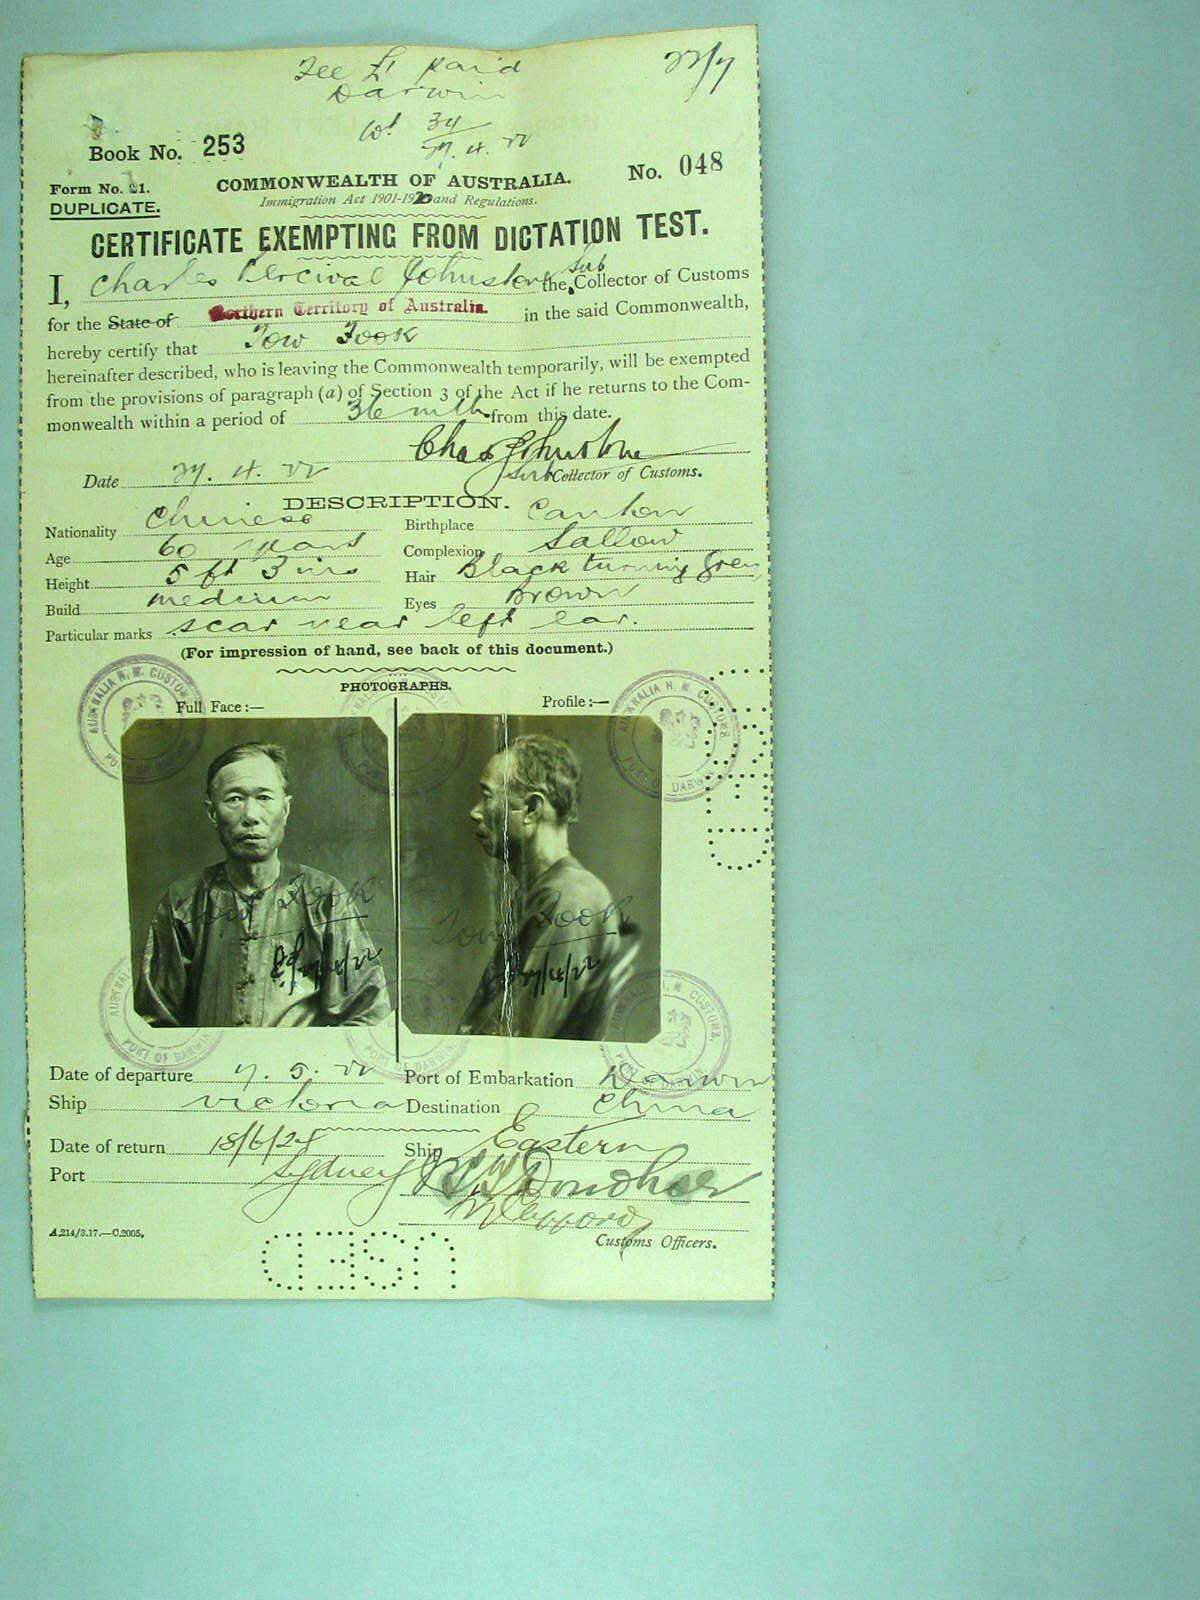 Fee £1 paid
Darwin
22/7
Book No. 253
34
27.4.22
Form No. 21.
DUPLICATE.
COMMONWEALTH OF AUSTRALIA.
No. 048
Immigration Act 1901-1920 and Regulations.
CERTIFICATE EXEMPTING FROM DICTATION TEST.
I, Charles Percival Johnstone the Sub Collector of Customs
for the State of Northern Territory of Australia. in the said Commonwealth,
hereby certify that Tow Fook
hereinafter described, who is leaving the Commonwealth temporarily, will be exempted
from the provisions of paragraph (a) of Section 3 of the Act if he returns to the Com-
monwealth within a period of 36 mths from this date.
Chas Johnstone
Date 27.4.22 Sub Collector of Customs.
DESCRIPTION.
Nationality Chinese Birthplace Canton
Age 60 years Complexion Sallow
Height 5 ft 3 ins Hair Black turning Grey
Build medium Eyes Brown
Particular marks scar near left ear.
(For impression of hand, see back of this document.)
PHOTOGRAPHS.
Full Face:— Profile:—
AUSTRALIA H. M. CUSTOMS PORT OF DARWIN
Tow Fook Tow Fook
Date of departure 7.5.22 Port of Embarkation Darwin
Ship Victoria Destination China
Date of return 18/6/24 Ship Eastern
Port Sydney
A.214/3.17.—C.2005. Customs Officers.
USED
USED